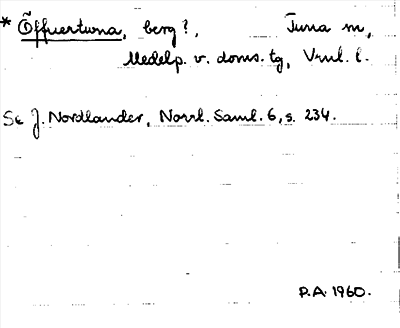 * Öffuertuna, berg?, Tuna sn,
Medelp. v. doms. tg, Vnl. l.
Se J. Nordlander, Norrl. Saml. 6, s. 234.
P.A. 1960.